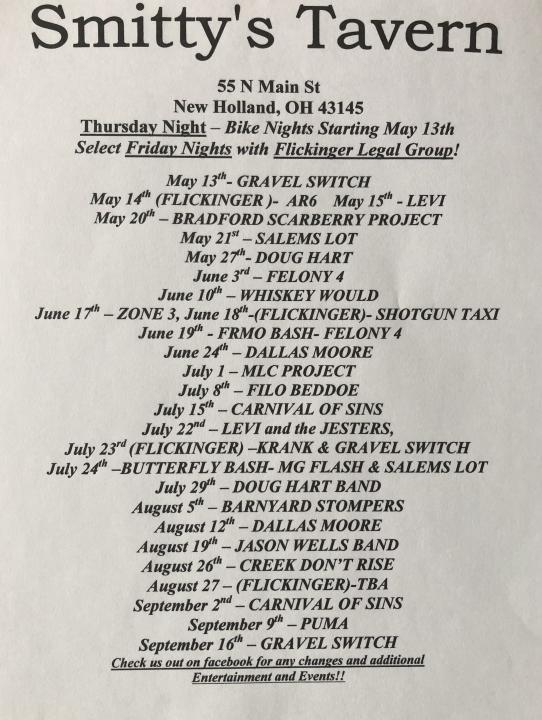 Smitty's Tavern
55 N Main St
New Holland, OH 43145
Thursday Night – Bike Nights Starting May 13th
Select Friday Nights with Flickinger Legal Group!
May 13th- GRAVEL SWITCH
May 14th (FLICKINGER )- AR6 May 15th - LEVI
May 20th – BRADFORD SCARBERRY PROJECT
May 21st – SALEMS LOT
May 27th- DOUG HART
June 3rd – FELONY 4
June 10th – WHISKEY WOULD
June 17th – ZONE 3, June 18th-(FLICKINGER)- SHOTGUN TAXI
June 19th - FRMO BASH- FELONY 4
June 24th – DALLAS MOORE
July 1 – MLC PROJECT
July 8th – FILO BEDDOE
July 15th – CARNIVAL OF SINS
July 22nd – LEVI and the JESTERS,
July 23rd (FLICKINGER) –KRANK & GRAVEL SWITCH
July 24th –BUTTERFLY BASH- MG FLASH & SALEMS LOT
July 29th – DOUG HART BAND
August 5th – BARNYARD STOMPERS
August 12th – DALLAS MOORE
August 19th – JASON WELLS BAND
August 26th – CREEK DON'T RISE
August 27 – (FLICKINGER)-TBA
September 2nd – CARNIVAL OF SINS
September 9th – PUMA
September 16th – GRAVEL SWITCH
Check us out on facebook for any changes and additional
Entertainment and Events!!